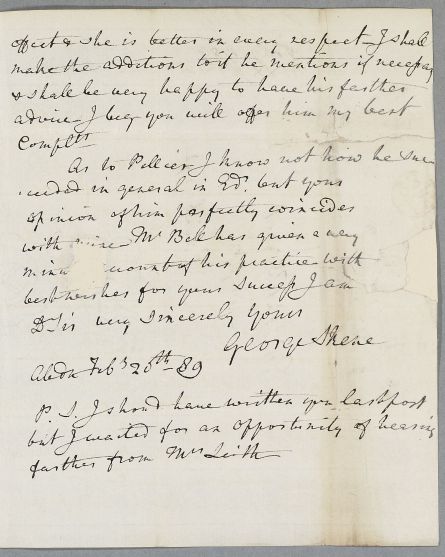 effect & she is better in every respect I shall
make the additions to it he mentions if necessary
& shall be very happy to have his farther
advice I beg you will offer him my best
Complts
As to Pellier I know not how he suc
ceeded in general in Ed. but your
opinion of him perfectly coincides
with mine Mr Bell has given a very
minu count of his practice with
best wishes for your Success I am
D Sir very Sincerely Yours
George Skene
Abdn Feb 25th 89
P. S. I shoud have written you last post
but I waited for an opportunity of hearing
farther from Mrs Leith